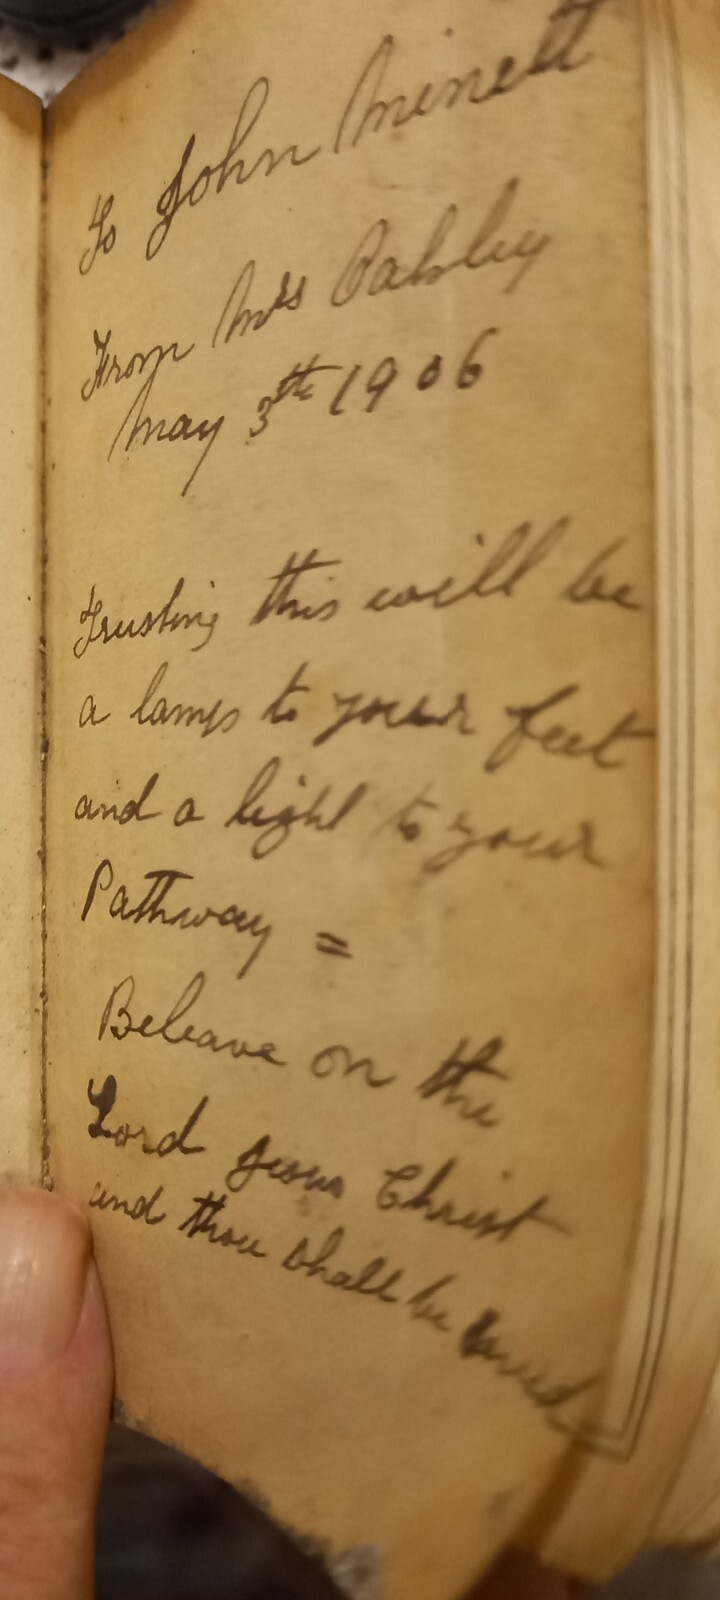 To John Minett
From Mrs Oakley
May 3th 1906
Trusting this will be
a lamp to your feet
and a light to your
Pathway =
Beleave on the
Lord Jesus Christ
and thou shall be saved